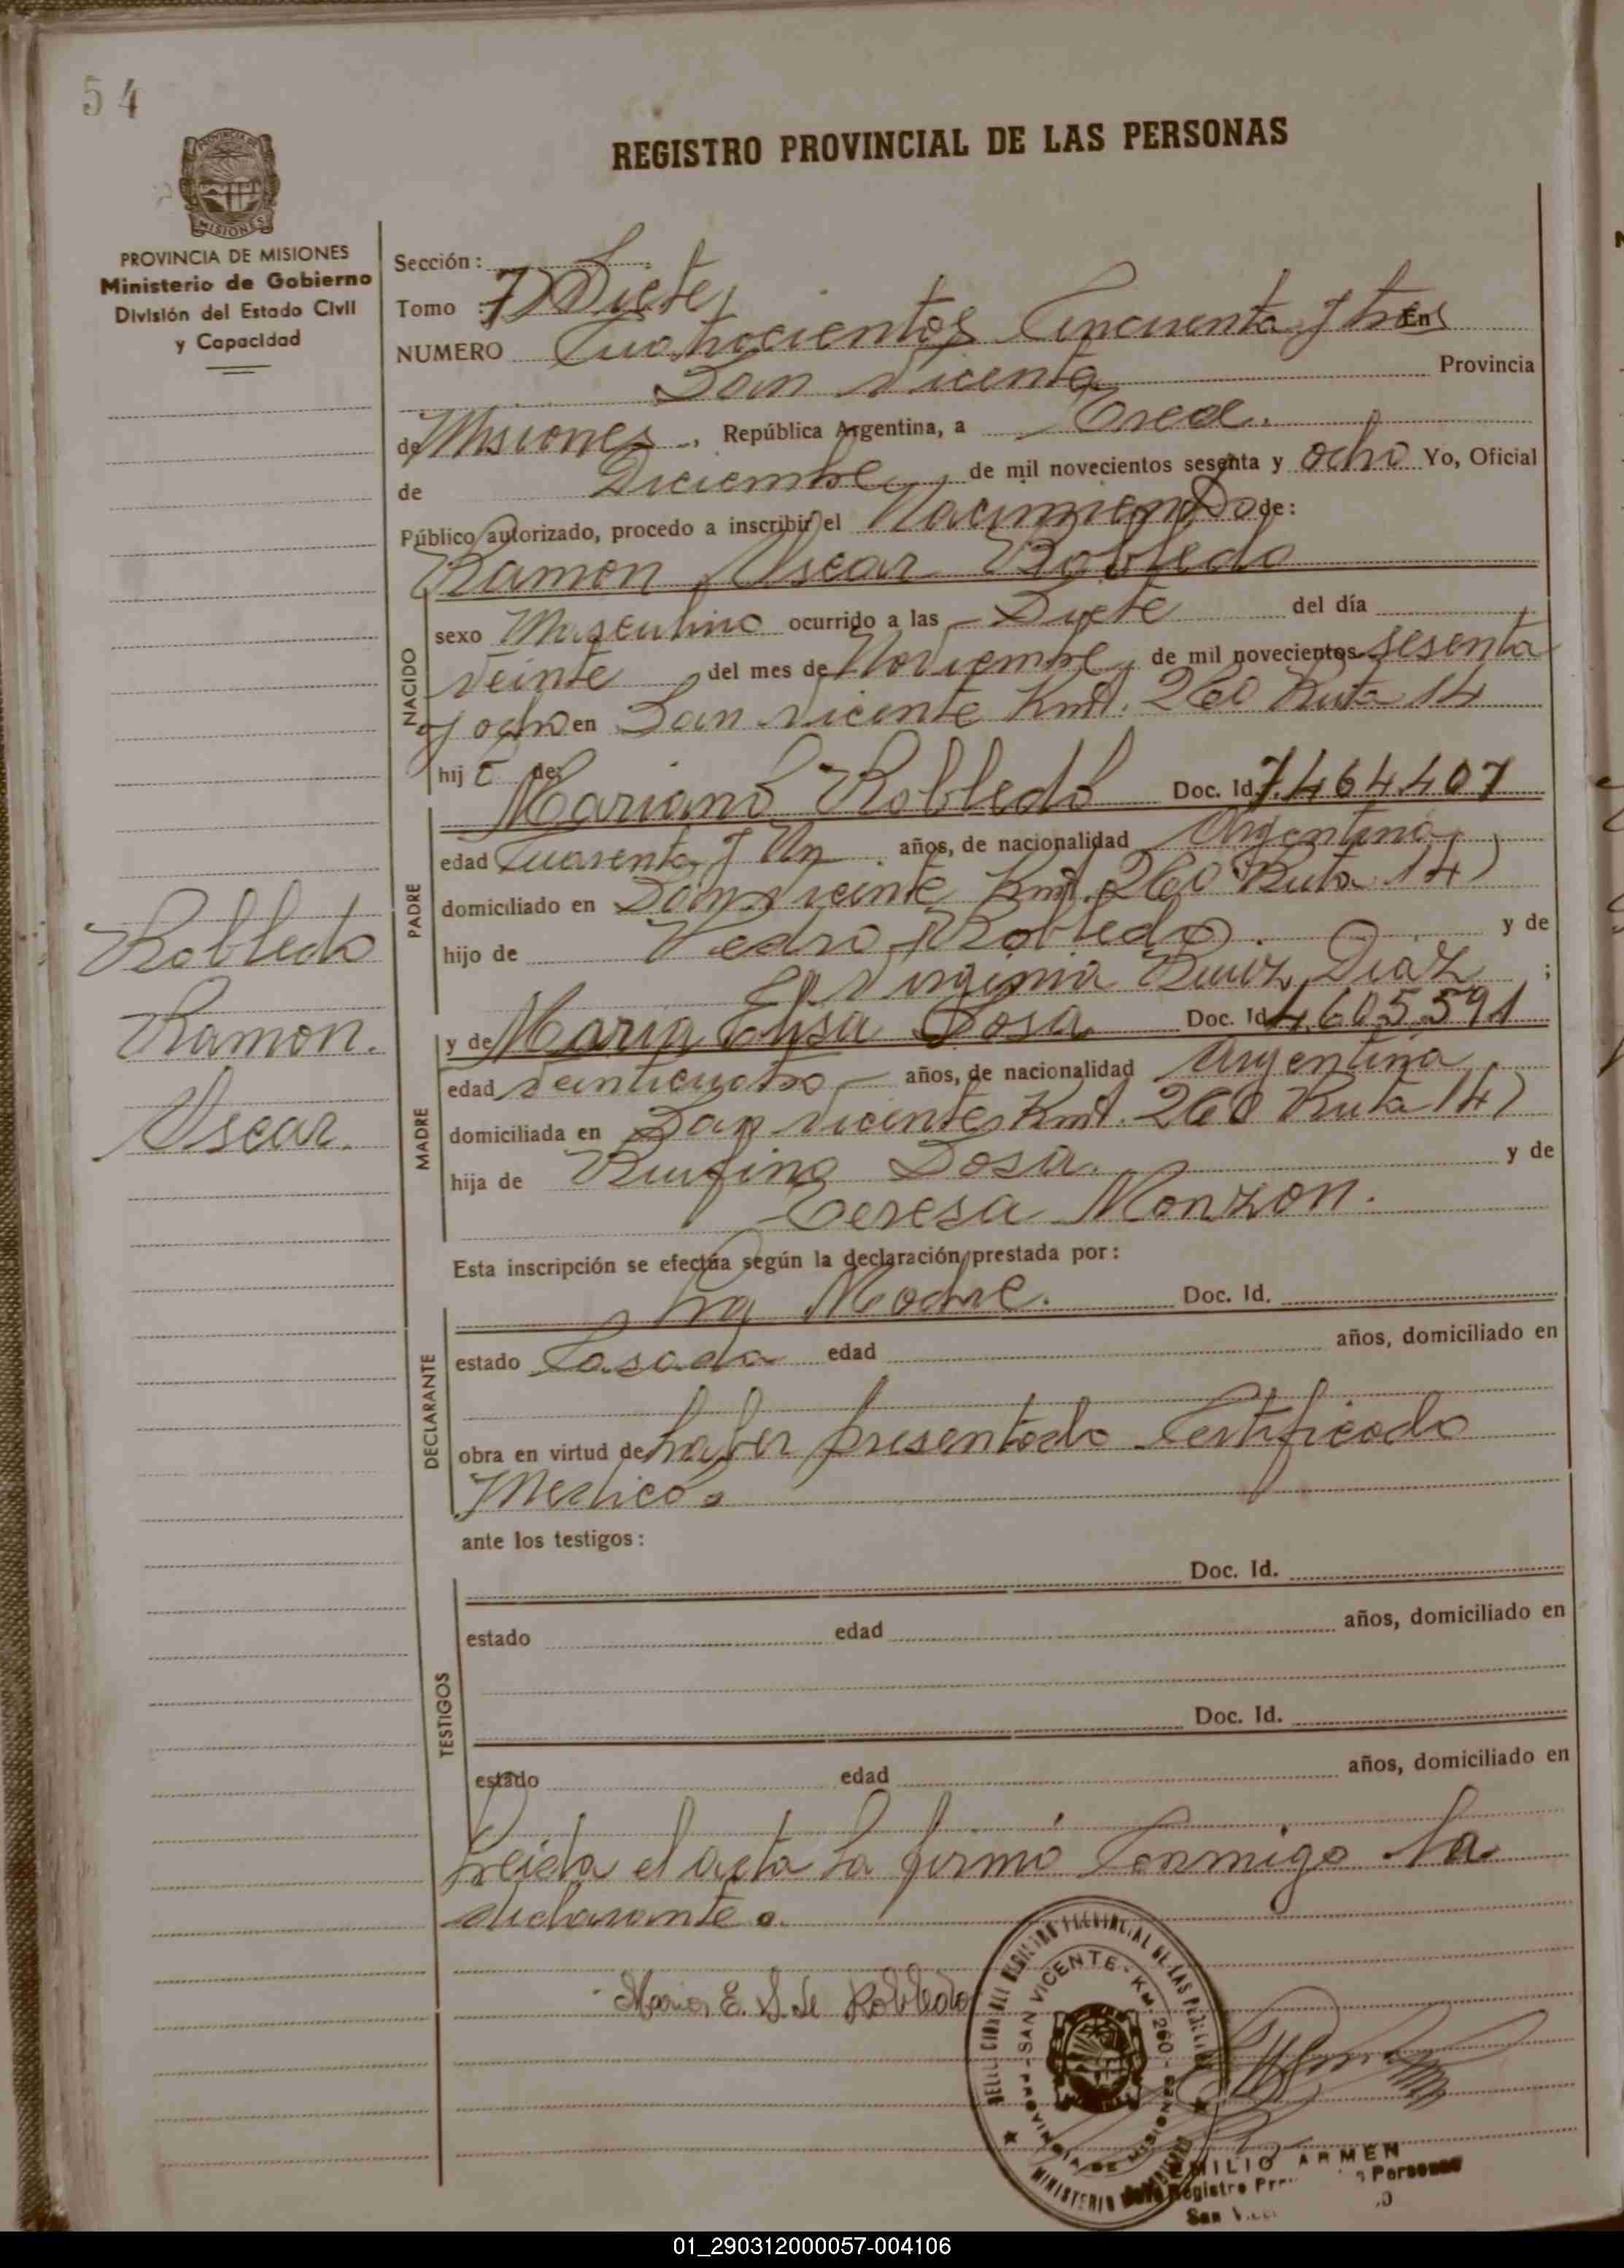 54
PROVINCIA DE MISIONES
Ministerio de Gobierno
División del Estado Civil
y Capacidad
REGISTRO PROVINCIAL DE LAS PERSONAS
Sección:
Tomo : 7) Siete)
NUMERO Cuatrocientos Cincuenta y tres En
San Vicente Provincia
de Misiones, República Argentina, a Trece.
de Diciembre, de mil novecientos sesenta y ocho Yo, Oficial
Público autorizado, procedo a inscribir el Nacimiento de:
Ramon Oscar Robledo
NACIDO
sexo Masculino ocurrido a las Siete del día
veinte del mes de Noviembre, de mil novecientos sesenta
y ocho en San Vicente Kmt. 260 Ruta 14
hij de:
Mariano Robledo Doc. Id. 7.464.407
PADRE
edad Cuarenta y Un años, de nacionalidad Argentina
domiciliado en San Vicente Kmt. 260 Ruta 14)
hijo de Pedro Robledo. y de
Virginia Ruiz Diaz ;
MADRE
y de Maria Elisa Sosa Doc. Id 4.605.591
edad veinticuatro años, de nacionalidad Argentina
domiciliada en San Vicente Kmt. 260 Ruta 14)
hija de Rufino Sosa. y de
Teresa Monzon.
Esta inscripción se efectúa según la declaración prestada por:
DECLARANTE
La Madre. Doc. Id.
estado Casada edad años, domiciliado en
obra en virtud de haber presentado Certificado
Medico.
ante los testigos:
TESTIGOS
Doc. Id.
estado edad años, domiciliado en
Doc. Id.
estado edad años, domiciliado en
Leida el acta la firmó Conmigo la
declarante.
Robledo
Ramon.
Oscar.
Maria E. S. de Robledo
REGISTRO PROVINCIAL DE LAS PERSONAS
SAN VICENTE - KM. 260 -
PROVINCIA DE MISIONES
MINISTERIO
EMILIO ARMEN
Registro Personas
San
01_290312000057-004106